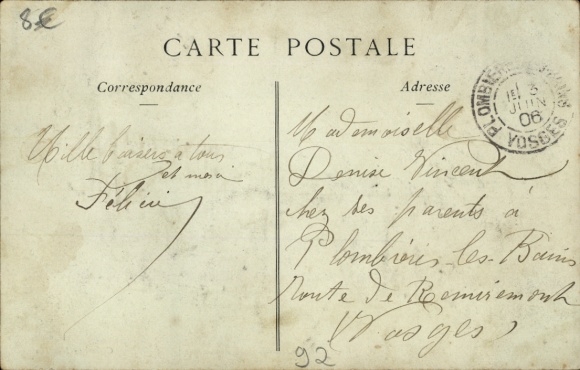 8€
CARTE POSTALE
Correspondance
Adresse
PLOMBIÈRES-LES-BAINS
3
JUIN
06
VOSGES
Mille baisers à tous
et merci
Félicie
Mademoiselle
Denise Vincent
chez ses parents à
Plombières-les-Bains
route de Remiremont
(Vosges)
92